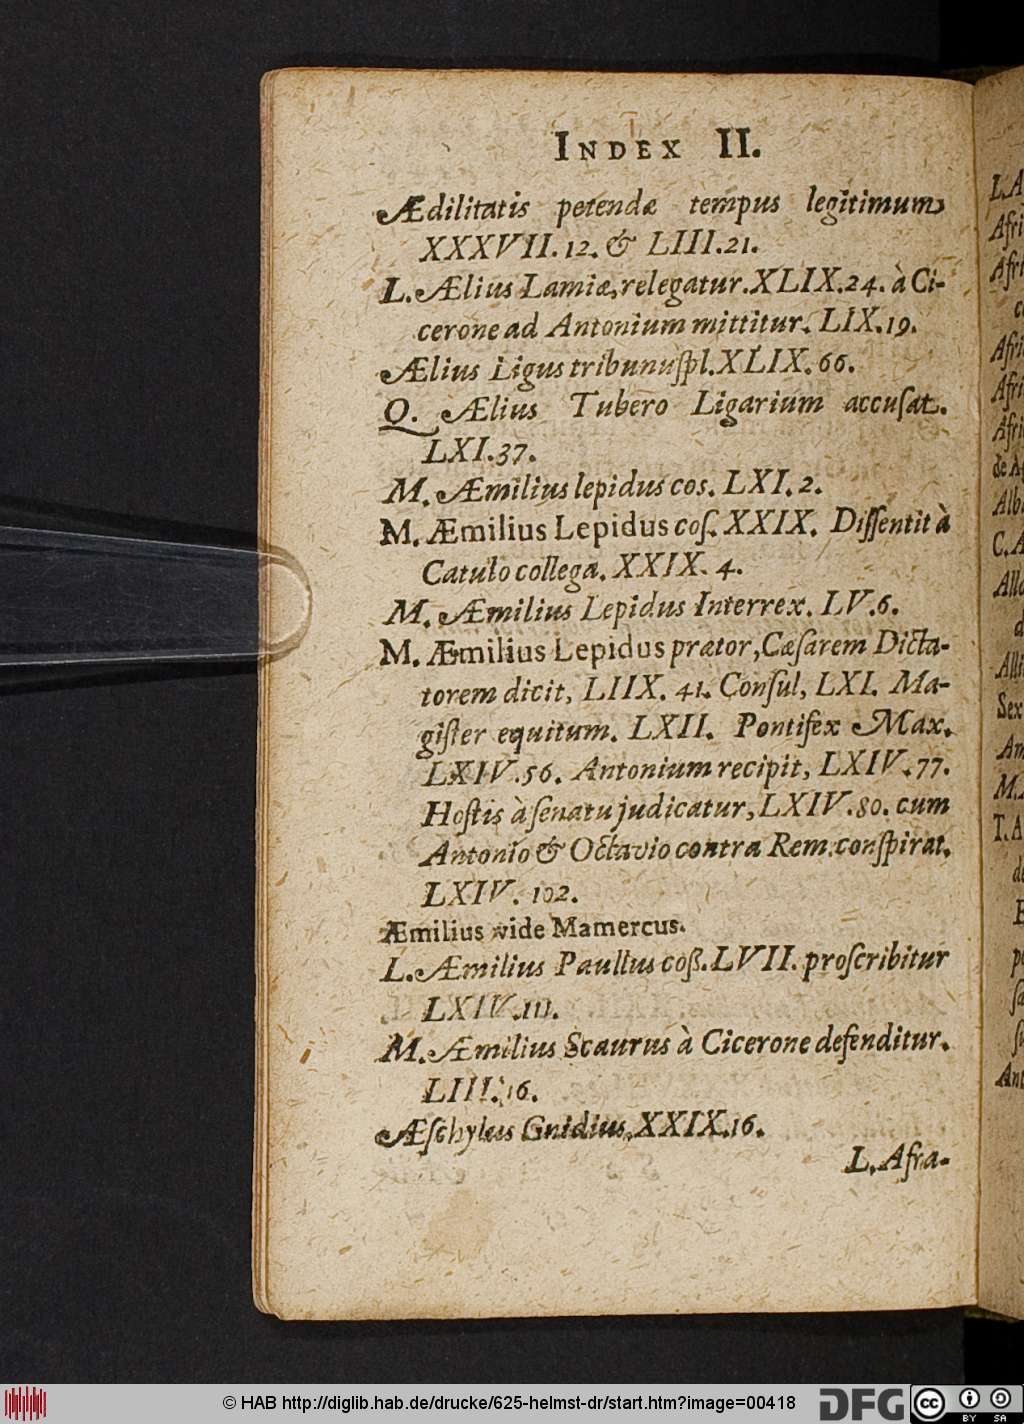 INDEX II.
Ædilitatis petendæ tempus legitimum
XXXVII. 12. & LIII. 21.
L. Ælius Lamiæ, relegatur. XLIX. 24. à Ci-
cerone ad Antonium mittitur. LIX. 19.
Ælius Ligus tribunuſpl. XLIX. 66.
Q. Ælius Tubero Ligarium accuſat.
LXI. 37.
M. Æmilius lepidus cos. LXI. 2.
M. Æmilius Lepidus coſ. XXIX. Diſſentit à
Catulo collega. XXIX. 4.
M. Æmilius Lepidus Interrex. LV. 6.
M. Æmilius Lepidus prætor, Cæſarem Dicta-
torem dicit, LIIX. 41. Conſul, LXI. Ma-
giſter equitum. LXII. Pontifex Max.
LXIV. 56. Antonium recipit, LXIV. 77.
Hoſtis à ſenatu judicatur, LXIV. 80. cum
Antonio & Octavio contra Rem. conſpirat.
LXIV. 102.
Æmilius vide Mamercus.
L. Æmilius Paullus coß. LVII. proſcribitur
LXIV. 111.
M. Æmilius Scaurus à Cicerone defenditur.
LIII. 16.
Æſchylus Gnidius, XXIX. 16.
L. Afra-
L. A
Afri
Afri
Afri
Afri
Afri
de A
Alb
C. A
Alli
Sex
M.
T. A
Ant
© HAB http://diglib.hab.de/drucke/625-helmst-dr/start.htm?image=00418
DFG
cc
BY SA